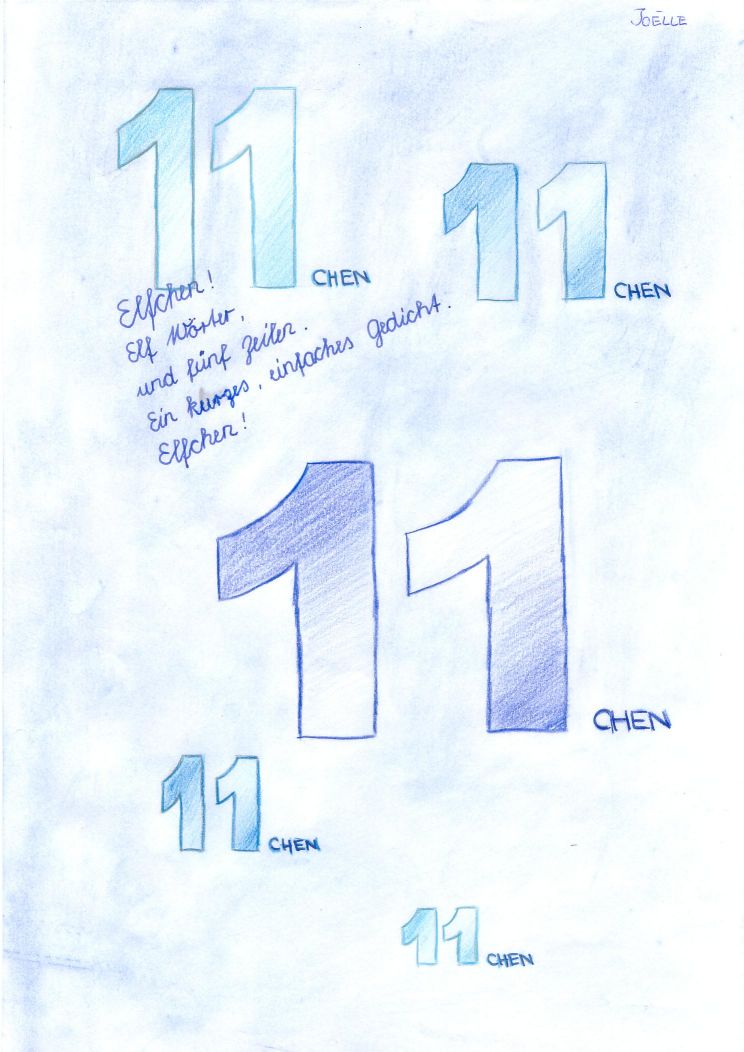 JOËLLE
11CHEN
11CHEN
Elfchen!
Elf Wörter,
und fünf Zeilen.
Ein kurzes, einfaches Gedicht.
Elfchen!
11CHEN
11CHEN
11CHEN